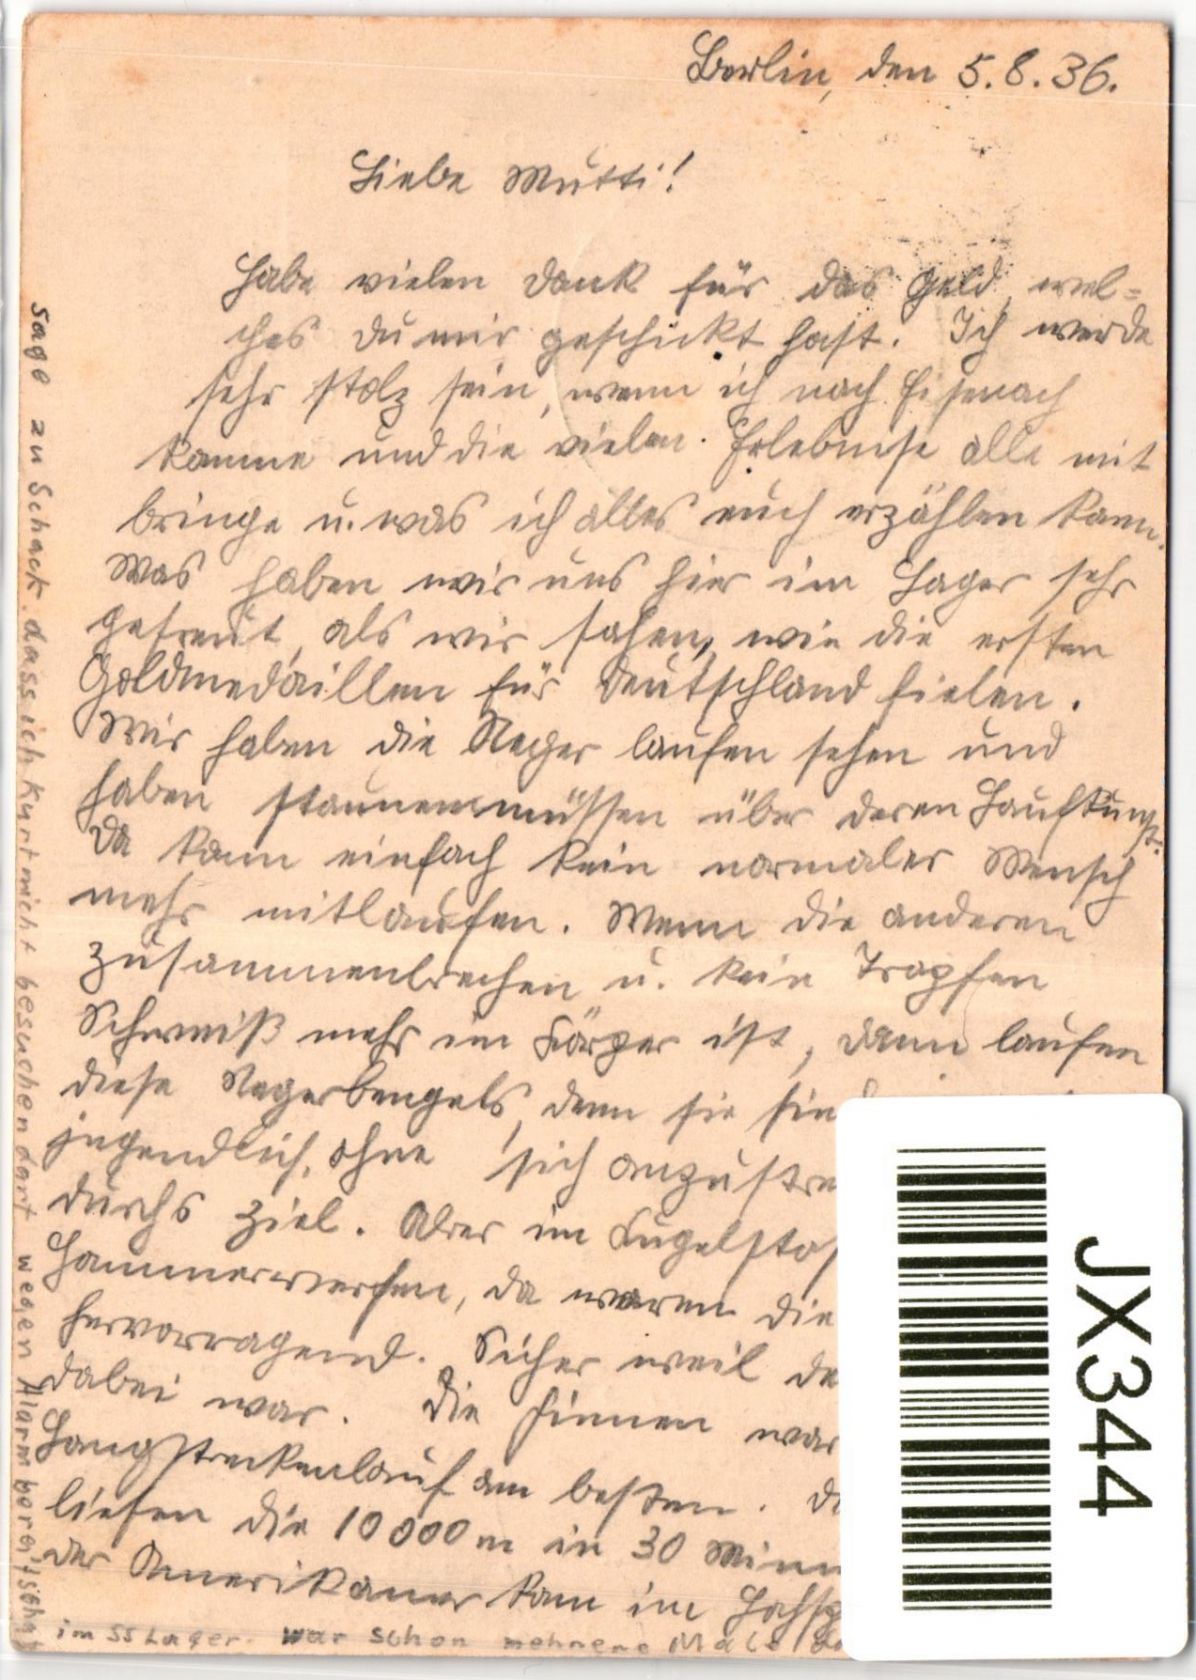 Berlin, den 5.8.36.
Liebe Mutti!
Habe vielen Dank für das Geld, wel=
ches Du mir geschickt hast. Ich werde
sehr stolz sein, wenn ich nach Eisenach
komme und die vielen Erlebnise alle mit
bringe u. was ich alles euch erzählen kann.
Was haben wir uns hier im Lager sehr
gefreut, als wir sahen, wie die ersten
Goldmedaillen für Deutschland fielen.
Wir haben die Neger laufen sehen und
haben staunen müssen über deren Laufkunst.
Da kann einfach kein normaler Mensch
mehr mitlaufen. Wenn die anderen
zusammenbrechen u. kein Tropfen
Schweiß mehr im Körper ist, dann laufen
diese Negerbengels, denn sie sind
jugendlich, ohne sich anzustre
durchs Ziel. Aber im Kugelstoß
Hammerwerfen, da waren die
hervorragend. Sicher weil de
dabei war. Die Finnen war
Langstreckenlauf am besten. Di
liefen die 10000 m in 30 Minu
der Amerikaner kam im Hochsp
im SS Lager. war schon mehrere Male
Sage zu Schack. dass ich Kurt nicht besuchen darf wegen Alarmbereitschaf
JX344